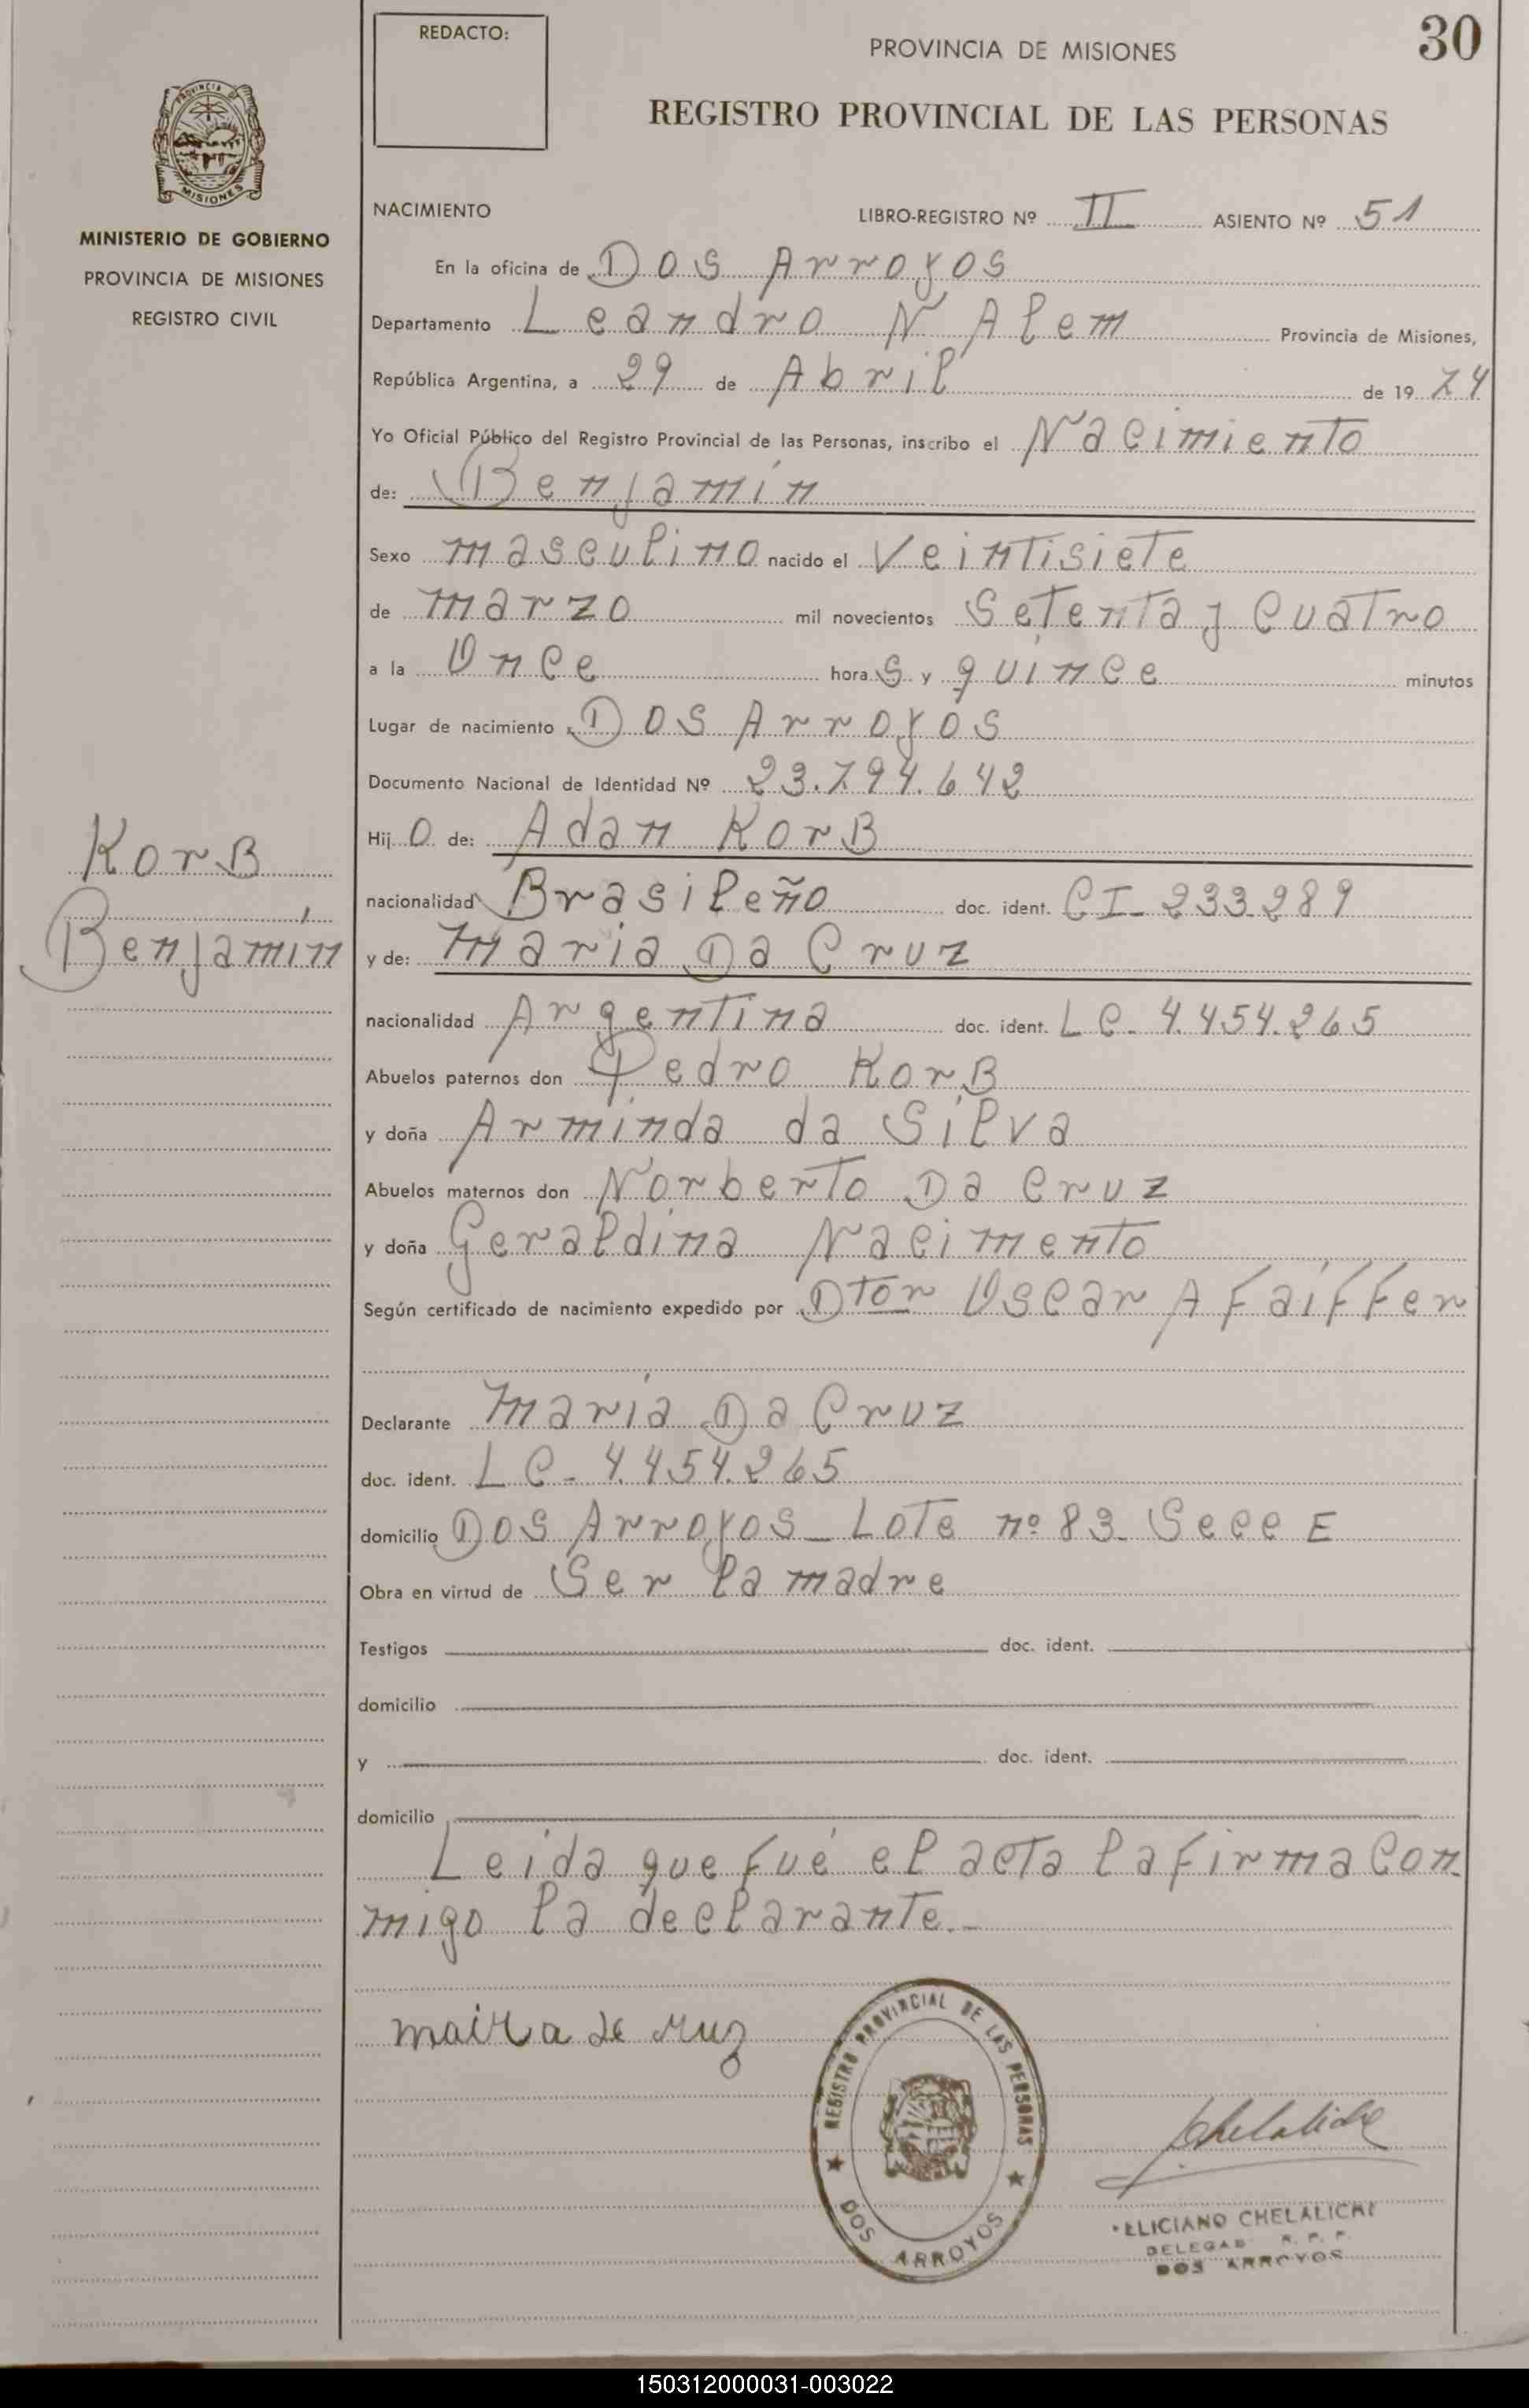 REDACTO:
PROVINCIA DE MISIONES
30
REGISTRO PROVINCIAL DE LAS PERSONAS
PROVINCIA
MISIONES
MINISTERIO DE GOBIERNO
PROVINCIA DE MISIONES
REGISTRO CIVIL
NACIMIENTO LIBRO-REGISTRO Nº II ASIENTO Nº 51
En la oficina de Dos Arroyos
Departamento Leandro N Alem Provincia de Misiones,
República Argentina, a 29 de Abril de 1974
Yo Oficial Público del Registro Provincial de las Personas, inscribo el Nacimiento
de: Benjamín
Sexo masculino nacido el Veintisiete
de marzo mil novecientos Setenta y Cuatro
a la Once horas y quince minutos
Lugar de nacimiento Dos Arroyos
Documento Nacional de Identidad Nº 23.794.642
Hijo de: Adan KorB
nacionalidad Brasileño doc. ident. CI- 233289
y de: Maria Da Cruz
nacionalidad Argentina doc. ident. LC- 4.454.265
Abuelos paternos don Pedro KorB
y doña Arminda da Silva
Abuelos maternos don Norberto Da Cruz
y doña Geraldina Nacimento
Según certificado de nacimiento expedido por Dtor Oscar A Faiffer
Declarante María Da Cruz
doc. ident. LC- 4.454.265
domicilio Dos Arroyos- Lote nº 83- Secc E
Obra en virtud de Ser la madre
Testigos doc. ident.
domicilio
y doc. ident.
domicilio
Leida que fué el acta la firma con
migo la declarante.-
KorB
Benjamín
maira de cruz
REGISTRO PROVINCIAL DE LAS PERSONAS
DOS ARROYOS
Chelaliche
ELICIANO CHELALICHE
DELEGAD R. P. P.
DOS ARROYOS
150312000031-003022